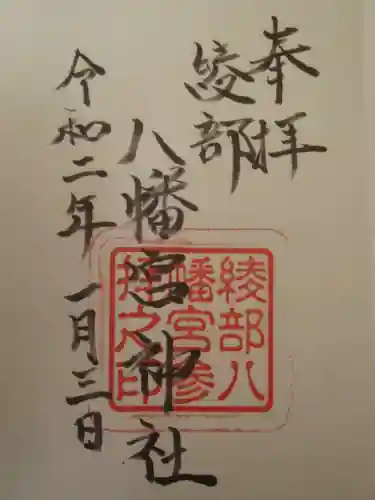 奉拝
綾部
八幡宮神社
令和二年一月三日
綾部八
幡宮参
拝之印